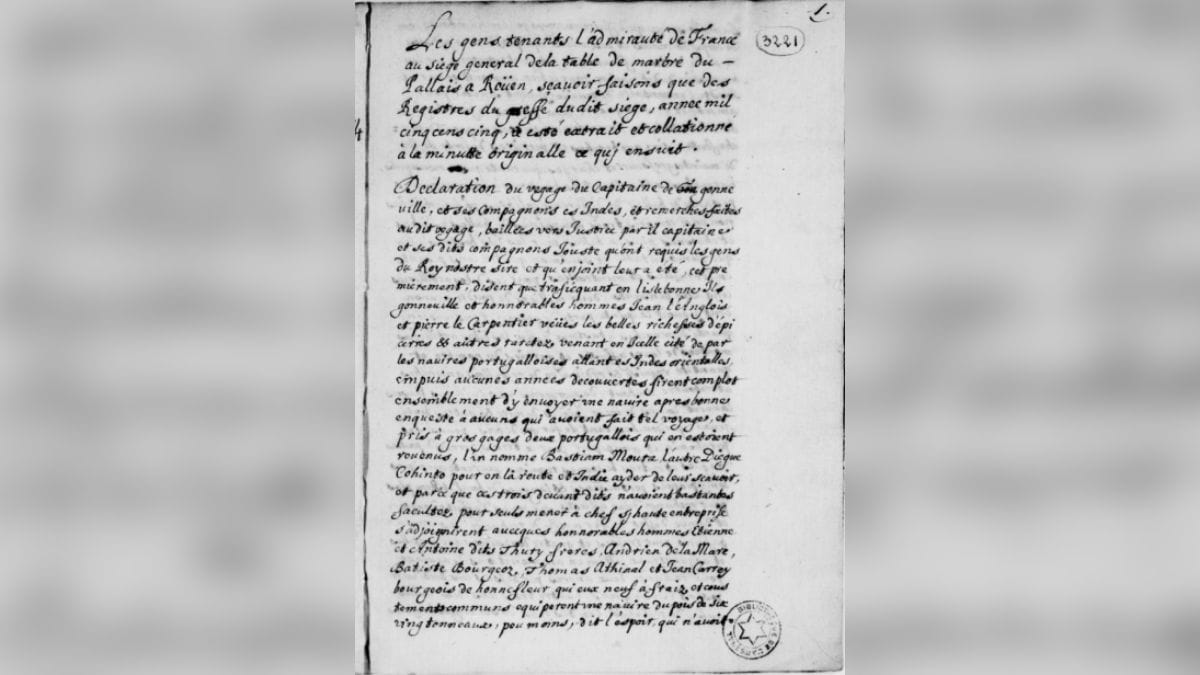 1.
3221
Les gens tenants l'admirauté de France
au siege general de la table de marbre du –
Pallais a Roüen, sçavoir faisons que des
Registres du greffe dudit siege, annee mil
cinq cens cinq, a esté extrait et collationné
à la minutte originalle ce quj ensuit.
Declaration du vegage du Capitaine de gonne
ville, et ses compagnons es Indes, et remerches faites
audit vegage, baillées vers Justice par il capitaine
et ses dits compagnons Jouste qu'ont requis les gens
du Roy nostre sire et qu'enjoint leur a été, cet pre
mierement, disent que trafiquant en lisebonne Ils
gonneuille et honnorables hommes Jean l'Anglois
et pierre le Carpentier veües les belles richesses d'épi
ceries & autres raretez venant en Icelle cité de par
les navires portugalloises allant es Indes orientalles,
empuis aucunes annees decouvertes firent complot
ensemblement d'y envoyer vne navire apres bonne
enqueste à aucuns qui avoient fait tel voyage, et
pris à gros gages deux portugallois qui en estoient
revenus, l'un nomme Bastiam Moura l'autre Diegue
Cohinto pour en la route es Indie ayder de leur sçavoir,
et parce que ces trois devant dits n'avoient bastantes
facultez pour seuls mener à chef sj haute entreprise
s'adjoignirent avecques honnorables hommes Etienne
et Antoine dits Thiery freres, Andrien de la Mare,
Batiste Bourgeoz, Thomas Athinal et Jean Carrey
bourgeois de honnefleur qui eux neuf à fraiz et cous
tements communs equiperent vne navire du pois de six
vingt tonneaux, peu moins, dit l'espoir, qui n'avoit